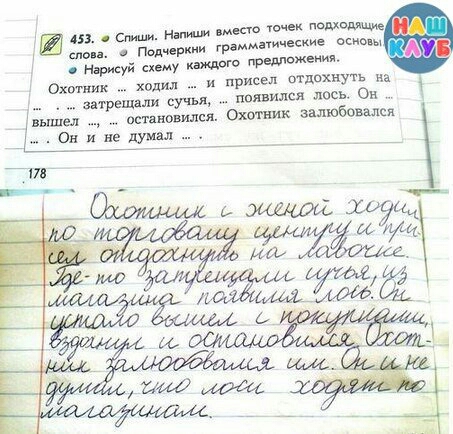 НАШ
КЛУБ
453. Спиши. Напиши вместо точек подходящие
слова. Подчеркни грамматические основы.
Нарисуй схему каждого предложения.
Охотник ... ходил ... и присел отдохнуть на
... . ... затрещали сучья, ... появился лось. Он ...
вышел ..., ... остановился. Охотник залюбовался
... . Он и не думал ... .
178
Охотник с женой ходил
по торговому центру и при
сел отдохнуть на лавочке.
Где-то затрещали сучья, из
магазина появился лось. Он
устало вышел с покупками,
вздогнул и остановился. Охот-
ник залюбовался им. Он и не
думал, что лоси ходят по
магазинам.